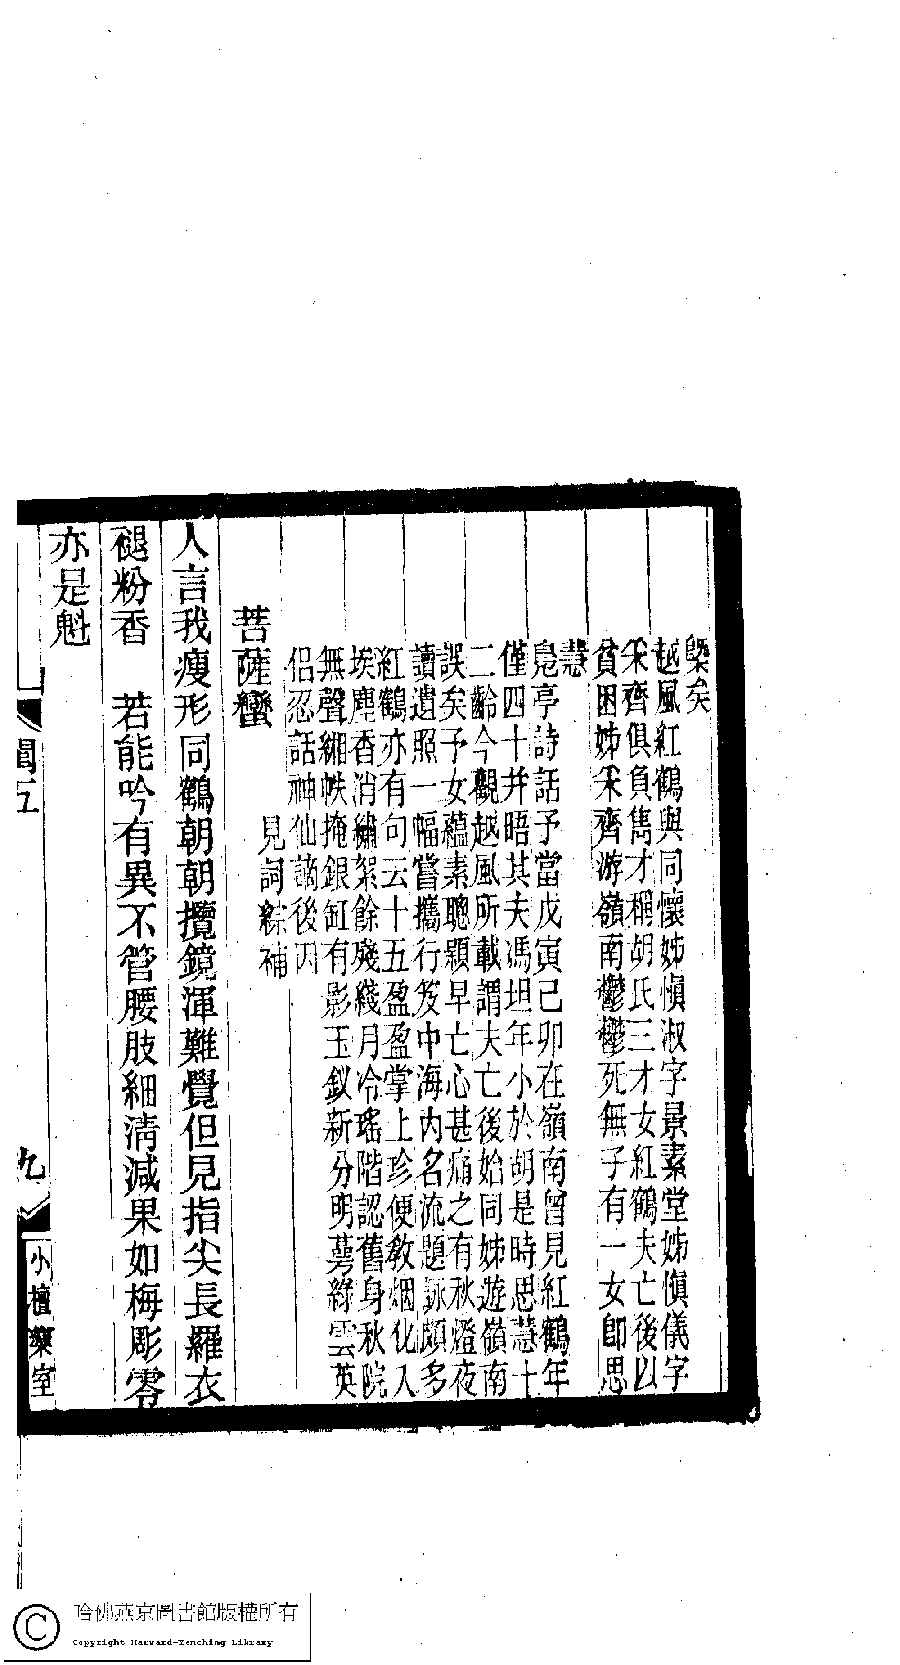 槩矣
越風紅鶴與同懷姊愼淑字景素堂姊愼儀字
采齊俱負雋才稱胡氏三才女紅鶴夫亡後以
貧困姊采齊游嶺南鬱鬱死無子有一女卽思
慧
凫亭詩話予當戊寅己卯在嶺南曾見紅鶴年
僅四十幷晤其夫馮坦年小於胡是時思慧十
二齡今觀越風所載謂夫亡後始同姊遊嶺南
誤矣予女蘊素聰穎早亡心甚痛之有秋燈夜
讀遺照一幅嘗攜行笈中海內名流題詠頗多
紅鶴亦有句云十五盈盈掌上珍便敎烟化入
埃塵香消繡絮餘殘綫月冷瑤階認舊身秋院
無聲緗帙掩銀缸有影玉釵新分明萼綠雲英
侶忍話神仙謫後因
見詞綜補
菩薩蠻
人言我瘦形同鶴朝朝攬鏡渾難覺但見指尖長羅衣
褪粉香　若能吟有異不管腰肢細淸減果如梅彫零
亦是魁
閨五
九
小檀欒室
哈佛燕京圖書館版權所有
Copyright Harvard-Yenching Library